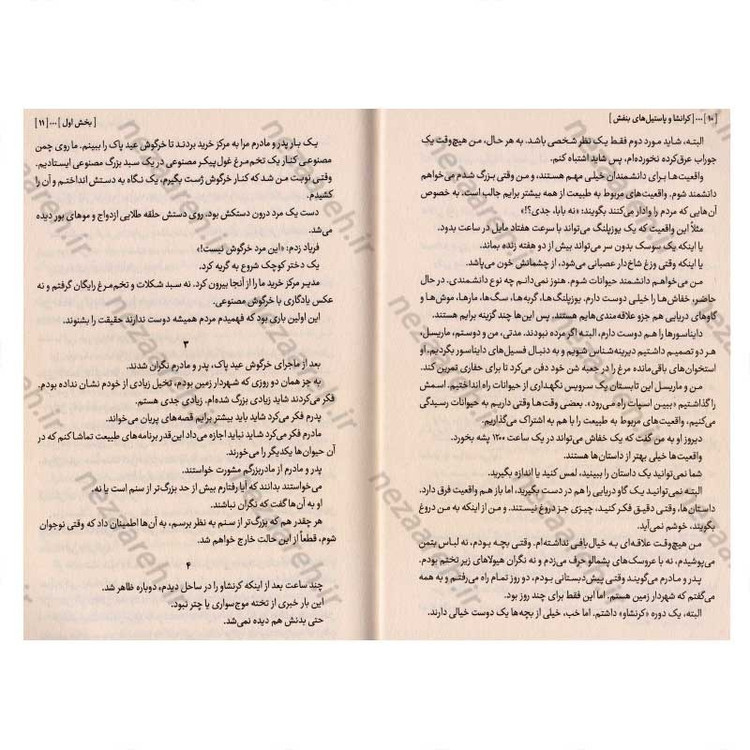 [ ۱۰ ] ... [ کرانشا و پاستیل‌های بنفش ]
البته، شاید مورد دوم فقط یک نظر شخصی باشد. به هر حال، من هیچ‌وقت یک
جوراب عرق‌کرده نخورده‌ام، پس شاید اشتباه کنم.
واقعیت‌ها برای دانشمندان خیلی مهم هستند، و من وقتی بزرگ شدم می‌خواهم
دانشمند شوم. واقعیت‌های مربوط به طبیعت از همه بیشتر برایم جالب است، به خصوص
آن‌هایی که مردم را وادار می‌کنند بگویند: «نه بابا، جدی؟!»
مثلاً این واقعیت که یک یوزپلنگ می‌تواند با سرعت هفتاد مایل در ساعت بدود.
یا اینکه یک سوسک بدون سر می‌تواند بیش از دو هفته زنده بماند.
یا اینکه وقتی وزغ شاخ‌دار عصبانی می‌شود، از چشمانش خون می‌پاشد.
من می‌خواهم دانشمند حیوانات شوم. هنوز نمی‌دانم چه نوع دانشمندی. در حال
حاضر، خفاش‌ها را خیلی دوست دارم. یوزپلنگ‌ها، گربه‌ها، سگ‌ها، مارها، موش‌ها و
گاوهای دریایی هم جزو علاقه‌مندی‌هایم هستند. پس این‌ها چند گزینه برایم هستند.
دایناسورها را هم دوست دارم، البته اگر مرده نبودند. مدتی، من و دوستم، ماریسل،
هر دو تصمیم داشتیم دیرینه‌شناس شویم و به دنبال فسیل‌های دایناسور بگردیم. او
استخوان‌های باقی‌مانده مرغ را در جعبه شن خود دفن می‌کرد تا برای حفاری تمرین کند.
من و ماریسل این تابستان یک سرویس نگهداری از حیوانات راه انداختیم. اسمش
را گذاشتیم «ببین اسپات راه می‌رود». بعضی وقت‌ها وقتی داریم به حیوانات رسیدگی
می‌کنیم، واقعیت‌های مربوط به طبیعت را با هم به اشتراک می‌گذاریم.
دیروز او به من گفت که یک خفاش می‌تواند در یک ساعت ۱۲۰۰ پشه بخورد.
واقعیت‌ها خیلی بهتر از داستان‌ها هستند.
شما نمی‌توانید یک داستان را ببینید، لمس کنید یا اندازه بگیرید.
البته نمی‌توانید یک گاو دریایی را هم در دست بگیرید، اما باز هم واقعیت فرق دارد.
داستان‌ها، وقتی دقیق فکر کنید، چیزی جز دروغ نیستند. و من از اینکه به من دروغ
بگویند، خوشم نمی‌آید.
من هیچ‌وقت علاقه‌ای به خیال‌بافی نداشته‌ام. وقتی بچه بودم، نه لباس بتمن
می‌پوشیدم، نه با عروسک‌های پشمالو حرف می‌زدم و نه نگران هیولاهای زیر تختم بودم.
پدر و مادرم می‌گویند وقتی پیش‌دبستانی بودم، دو روز تمام راه می‌رفتم و به همه
می‌گفتم که شهردار زمین هستم. اما این فقط برای چند روز بود.
البته، یک دوره «کرنشاو» داشتم. اما خب، خیلی از بچه‌ها یک دوست خیالی دارند.
[ بخش اول ] ... [ ۱۱ ]
یک بار پدر و مادرم مرا به مرکز خرید بردند تا خرگوش عید پاک را ببینم. ما روی چمن
مصنوعی کنار یک تخم‌مرغ غول‌پیکر مصنوعی در یک سبد بزرگ مصنوعی ایستادیم.
وقتی نوبت من شد که کنار خرگوش ژست بگیرم، یک نگاه به دستش انداختم و آن را
کشیدم.
دست یک مرد درون دستکش بود. روی دستش حلقه طلایی ازدواج و موهای بور دیده
می‌شد.
فریاد زدم: «این مرد خرگوش نیست!»
یک دختر کوچک شروع به گریه کرد.
مدیر مرکز خرید ما را از آنجا بیرون کرد. نه سبد شکلات و تخم‌مرغ رایگان گرفتم و نه
عکس یادگاری با خرگوش مصنوعی.
این اولین باری بود که فهمیدم مردم همیشه دوست ندارند حقیقت را بشنوند.
۳
بعد از ماجرای خرگوش عید پاک، پدر و مادرم نگران شدند.
به جز همان دو روزی که شهردار زمین بودم، تخیل زیادی از خودم نشان نداده بودم.
فکر می‌کردند شاید زیادی بزرگ شده‌ام. زیادی جدی هستم.
پدرم فکر می‌کرد شاید باید بیشتر برایم قصه‌های پریان می‌خواند.
مادرم فکر می‌کرد شاید نباید اجازه می‌داد این‌قدر برنامه‌های طبیعت تماشا کنم که در
آن حیوان‌ها یکدیگر را می‌خورند.
پدر و مادرم از مادربزرگم مشورت خواستند.
می‌خواستند بدانند که آیا رفتارم بیش از حد بزرگ‌تر از سنم است یا نه.
او به آن‌ها گفت که نگران نباشند.
هر چقدر هم که بزرگ‌تر از سنم به نظر برسم، به آن‌ها اطمینان داد که وقتی نوجوان
شوم، قطعاً از این حالت خارج خواهم شد.
۴
چند ساعت بعد از اینکه کرنشاو را در ساحل دیدم، دوباره ظاهر شد.
این بار خبری از تخته موج‌سواری یا چتر نبود.
حتی بدنش هم دیده نمی‌شد.
nezaareh.ir